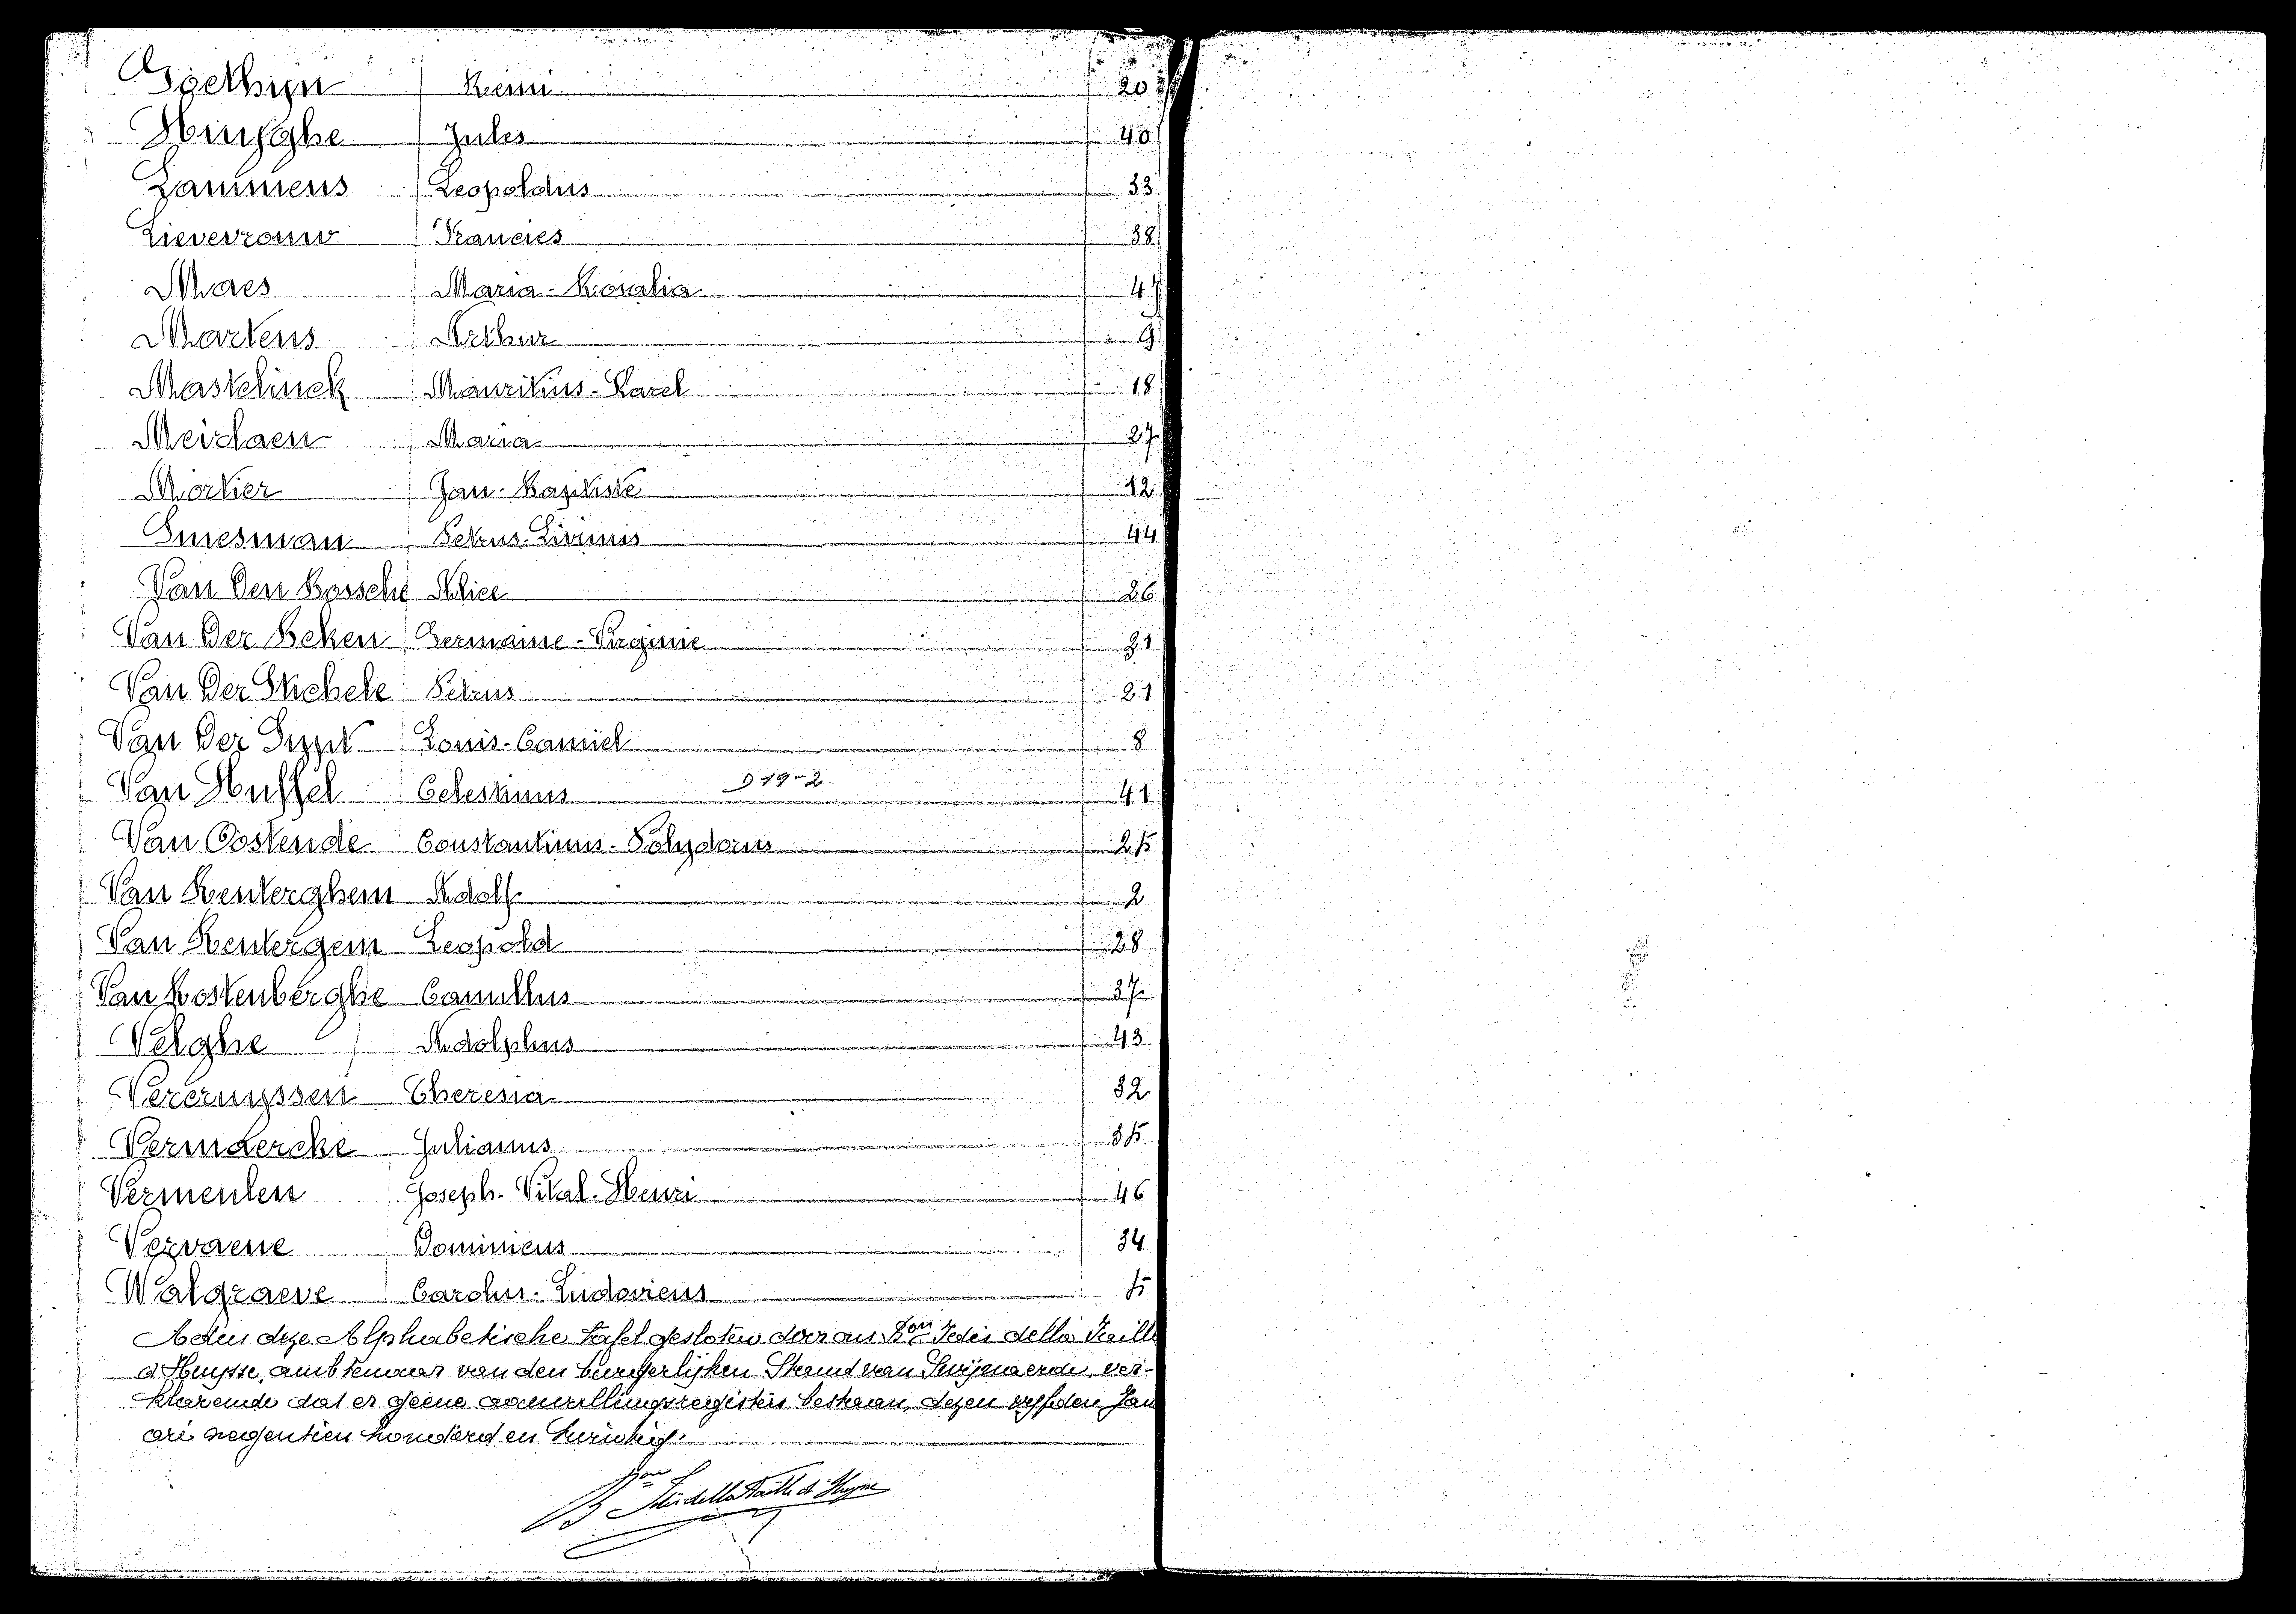 Goethijn Remi 20
Huysghe Jules 40
Lammens Leopoldus 33
Lieverrouw Francies 38
Maes Maria-Rosalia 47
Martens Arthur 9
Mastelinck Mauritius-Karel 18
Meirlaen Maria 27
Mortier Jan-Baptiste 12
Smesman Petrus-Livinus 44
Van Den Bossche Alice 26
Van Der Beken Germaine-Virginie 31
Van Der Stichele Petrus 21
Van Der Louis-Camiel 8
Van Huffel Celestinus D 19-2 41
Van Oostende Constantinus-Polydorus 25
Van Renterghem Adolf 2
Van Rentergem Leopold 28
Van Rostenberghe Camillus 37
Velghe Adolphus 43
Vercruyssen Theresia 32
Vermaercke Julianus 35
Vermeulen Joseph-Vital-Henri 46
Vervaene Dominicus 34
Walgraeve Carolus-Ludovicus 5
Aldus deze Alphabetische tafel gesloten door ons Bon Idès della Faille
d'Huysse, ambtenaar van den burgerlijken Stand van Swijnaerde, ver-
klarende dat er geene aanvullingsregisters bestaan, dezen vyfden Jan
ari negentien honderd en twintig.
Bon Idès della Faille d'Huysse